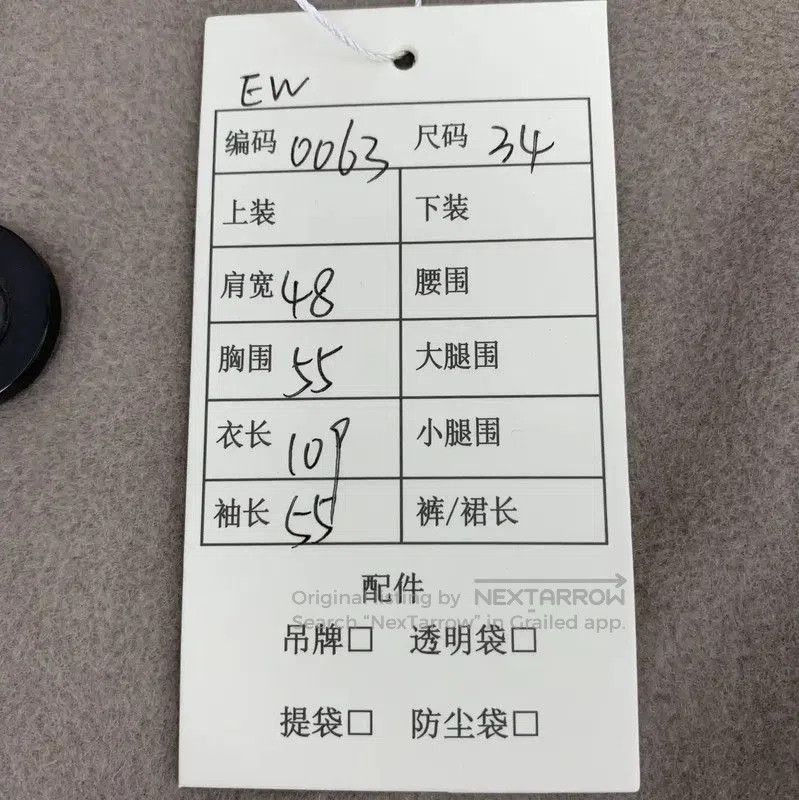 EW
编码 0063 尺码 34
上装 下装
肩宽 48 腰围
胸围 55 大腿围
衣长 109 小腿围
袖长 55 裤/裙长
配件
Original listing by NEXTARROW
Search "NexTarrow" in Grailed app.
吊牌□ 透明袋□
提袋□ 防尘袋□